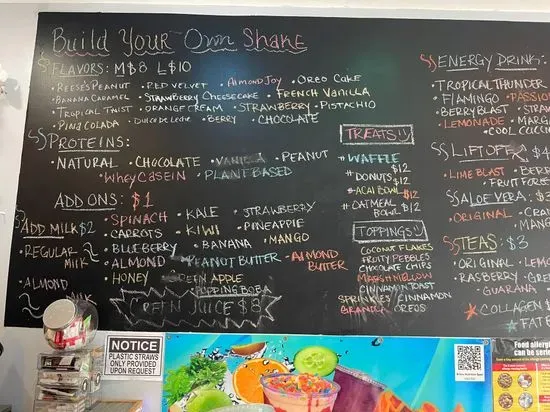 Build Your Own Shake
FLAVORS: M$8 L$10
• REESE'S PEANUT • RED VELVET • ALMOND JOY • OREO CAKE
• BANANA CARAMEL • STRAWBERRY CHEESECAKE • FRENCH VANILLA
• TROPICAL TWIST • ORANGE CREAM • STRAWBERRY • PISTACHIO
• PINA COLADA • DULCE DE LECHE • BERRY • CHOCOLATE
PROTEINS:
• NATURAL • CHOCOLATE • VANILLA • PEANUT
• WHEY CASEIN • PLANT BASED
ADD ONS: $1
• SPINACH • KALE • STRAWBERRY
• CARROTS • KIWI • PINEAPPLE
• BLUEBERRY • BANANA • MANGO
• ALMOND • PEANUT BUTTER • ALMOND BUTTER
• HONEY • GREEN APPLE
POPPING BOBA
GREEN JUICE $8
ADD MILK $2
• REGULAR MILK
• ALMOND MILK
TREATS
# WAFFLE $12
# DONUTS $12
# ACAI BOWL $12
# OATMEAL BOWL $12
TOPPINGS
COCONUT FLAKES
FRUITY PEBBLES
CHOCOLATE CHIPS
MARSHMELLOW
CINNAMON TOAST
SPRINKLES CINNAMON
GRANOLA OREOS
ENERGY DRINK:
TROPICAL THUNDER
• FLAMINGO • PASSION
• BERRY BLAST • STRA
LEMONADE • MARG
• COOL
LIFT OFF $4
• LIME BLAST • BER
• FRUIT FORE
ALOE VERA: $3
• ORIGINAL • CRA
• MANG
TEAS: $3
• ORIGINAL • LEMO
• RASBERRY • GRE
• GUARANA
COLLAGEN
FAT B
NOTICE
PLASTIC STRAWS
ONLY PROVIDED
UPON REQUEST
Food allergi
can be seri